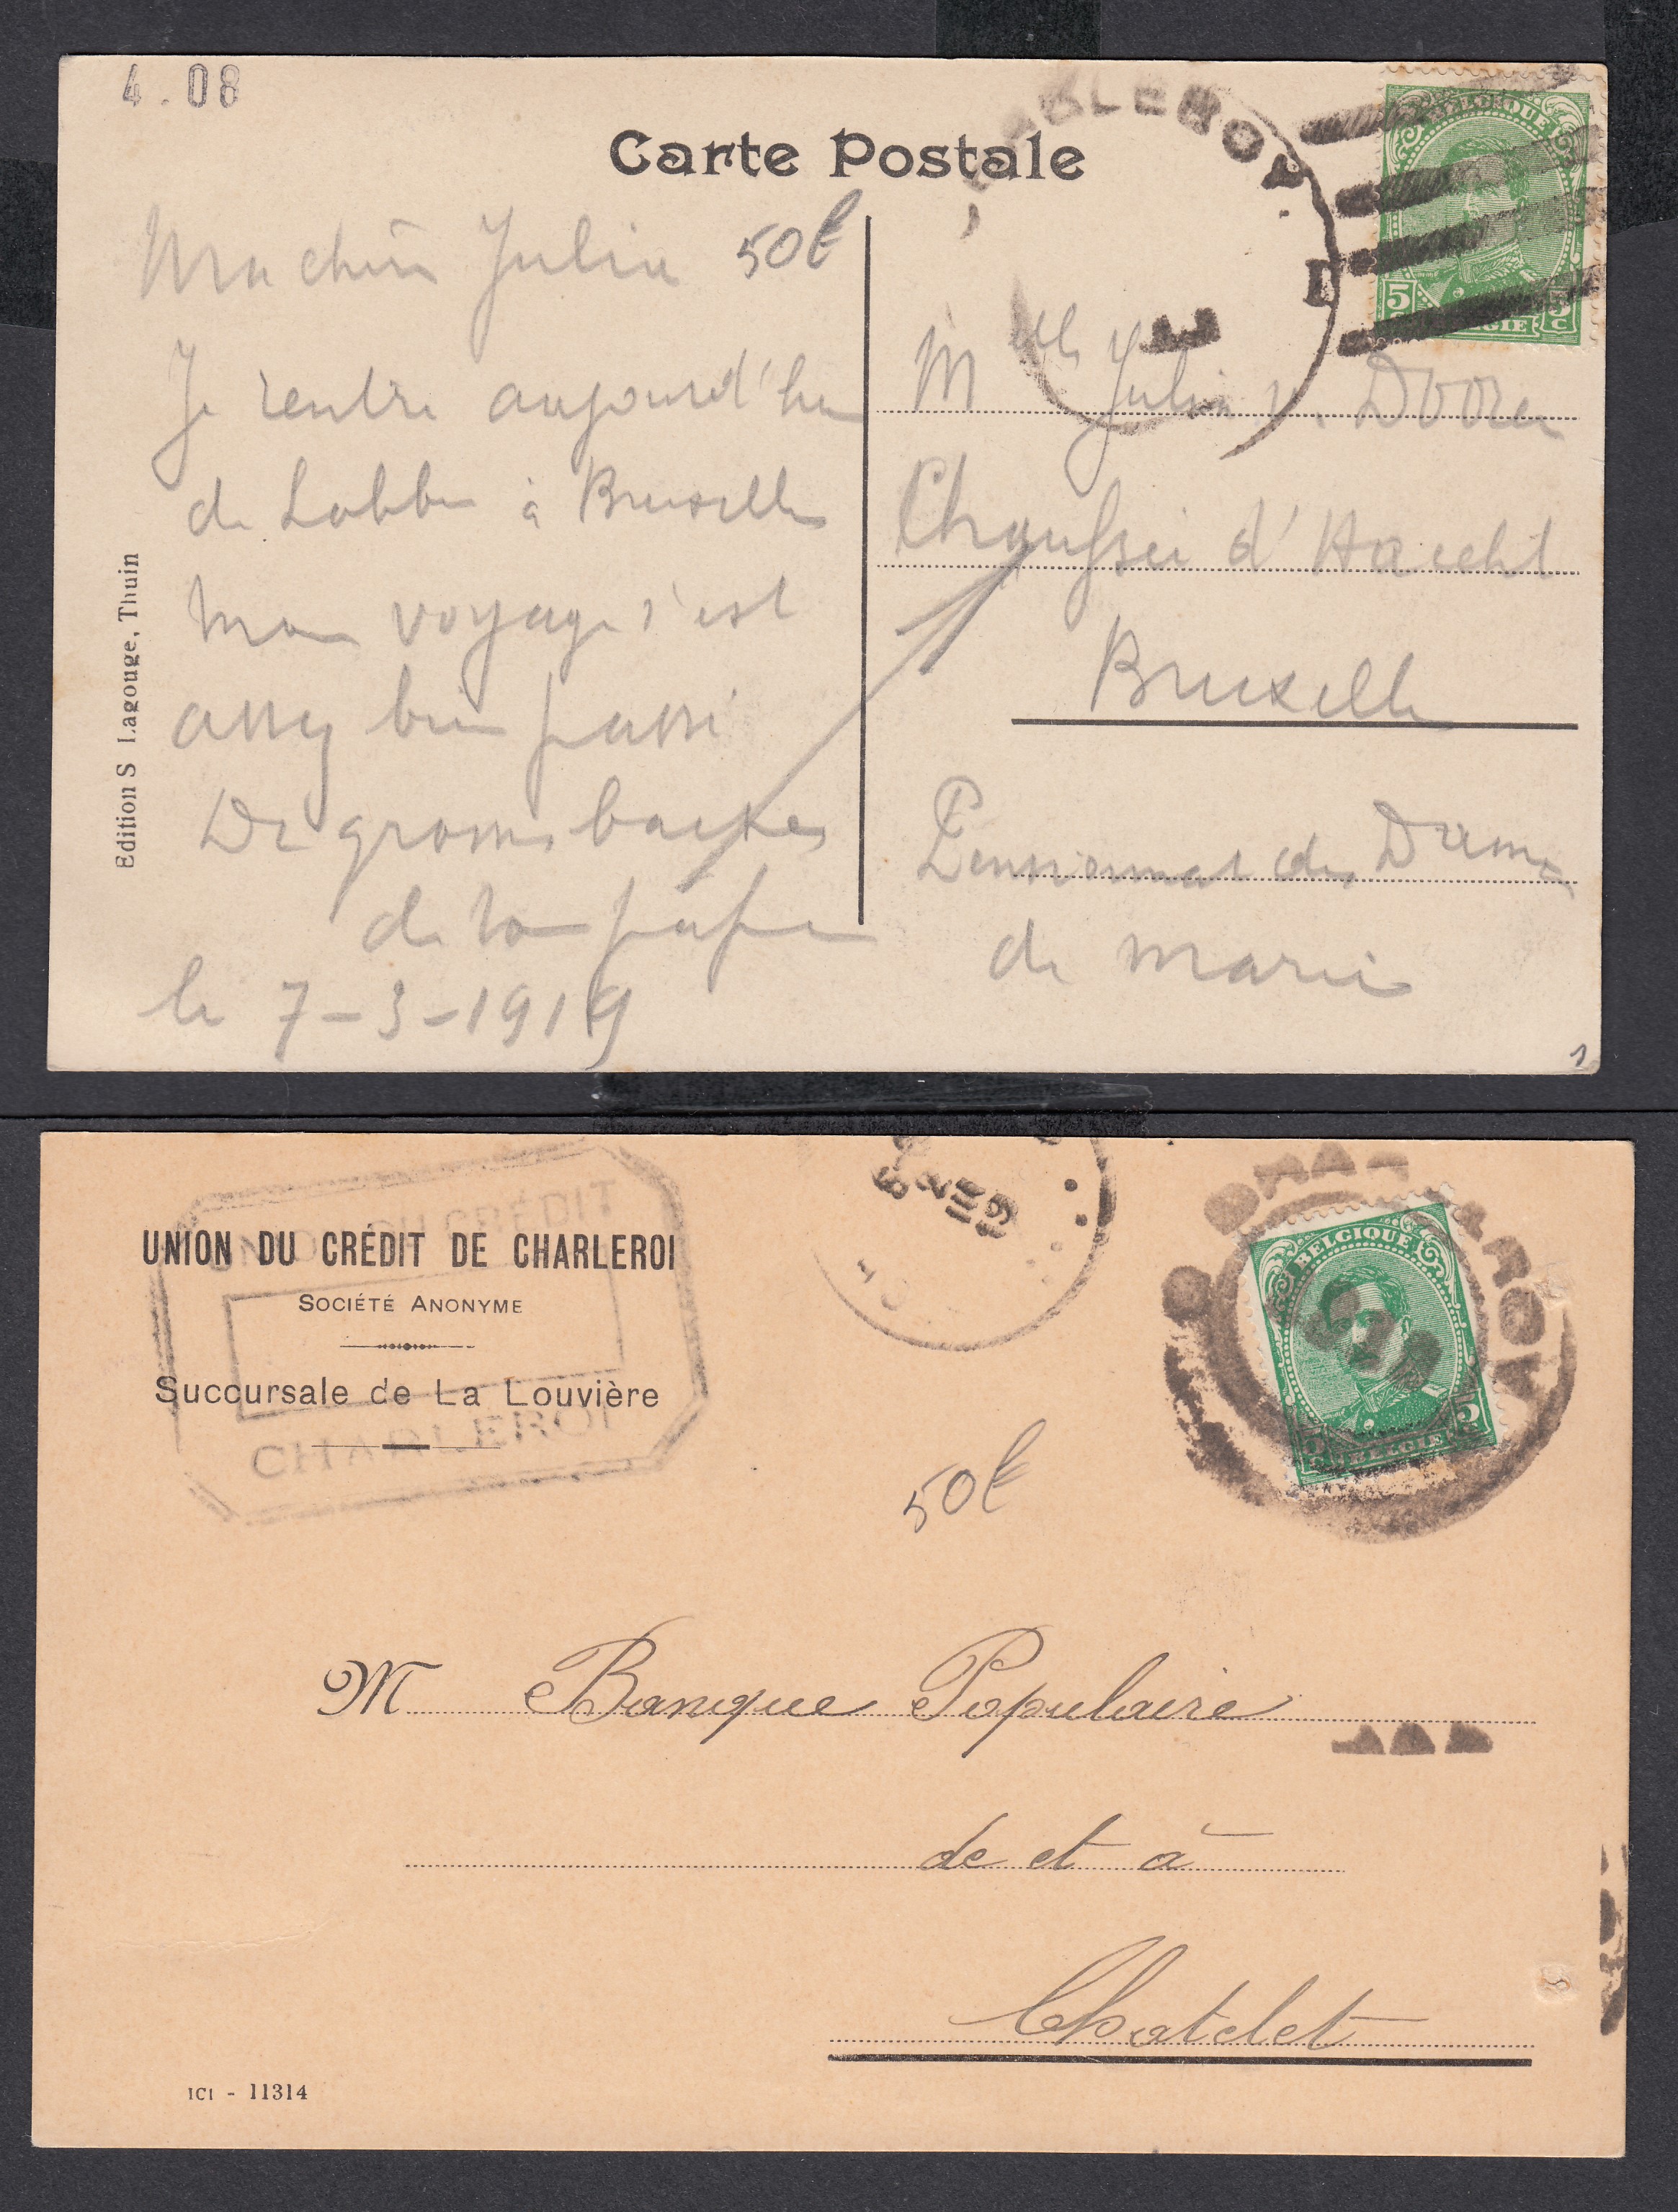 4.08
Carte Postale
Ma chère Julia 50F
Je rentre aujourd'hui
de Lobbes à Bruxelles
Mon voyage s'est
assez bien passé
De grosses baises
de ton
le 7-3-1919
Edition S Lagouge, Thuin
CHARLEROY
1
BELGIQUE
5c 5c
BELGIE
Melle Julia v. Dooren
Chaussée d'Haecht
Bruxelles
Pensionnat des Dames
de Marie
1
UNION DU CRÉDIT DE CHARLEROI
SOCIÉTÉ ANONYME
Succursale de La Louvière
UNION DU CRÉDIT
CHARLEROI
BELGIQUE
BELGIE
CHARLEROY
50F
M Banque Populaire
de et à
Chatelet
ICI - 11314